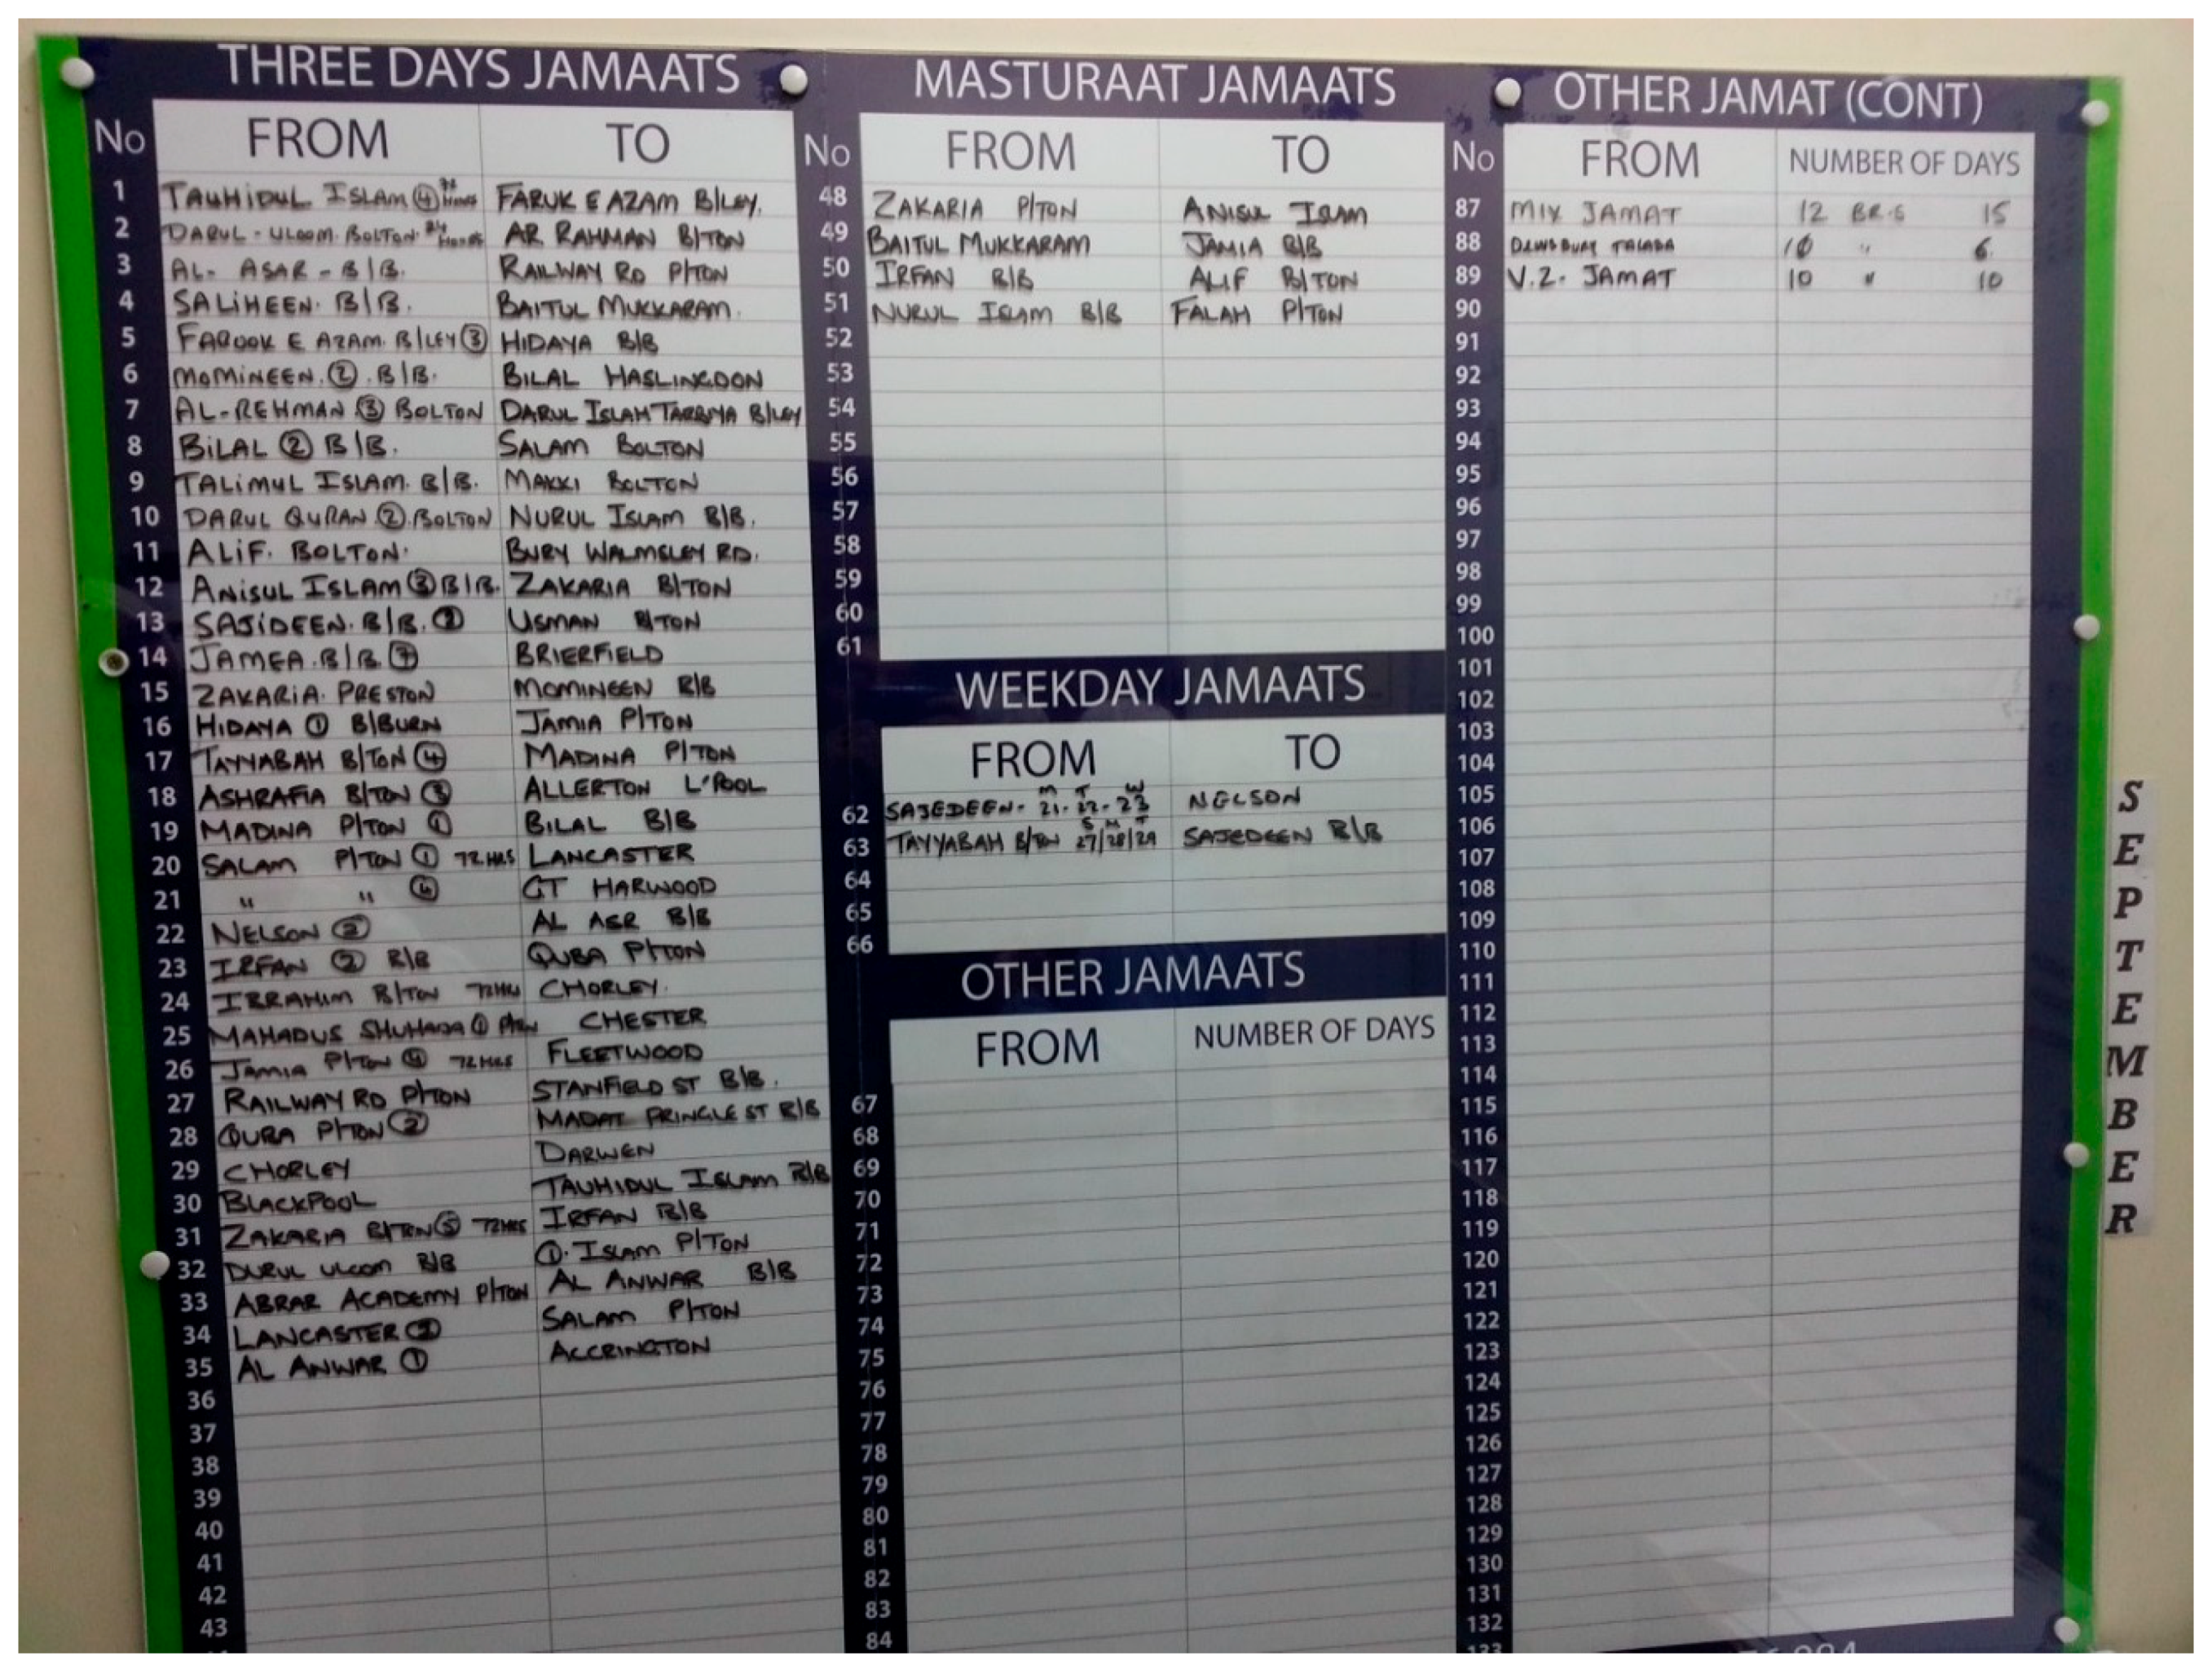 THREE DAYS JAMAATS
No FROM TO
1 TAUHIDUL ISLAM ④ FARUK E AZAM B/LEY.
2 DARUL-ULOOM. BOLTON. AR RAHMAN B/TON
3 AL-ASAR-B/B. RAILWAY RD P/TON
4 SALIHEEN. B/B. BAITUL MUKKARAM.
5 FAROOK E AZAM. B/LEY ③ HIDAYA B/B
6 MOMINEEN. ② .B/B. BILAL HASLINGDON
7 AL-REHMAN ③ BOLTON DARUL ISLAM TARBIYA B/LEY
8 BILAL ② B/B. SALAM BOLTON
9 TALIMUL ISLAM. B/B. MAKKI BOLTON
10 DARUL QURAN ② .BOLTON NURUL ISLAM B/B.
11 ALIF. BOLTON. BURY WALMSLEY RD.
12 ANISUL ISLAM ③ B/B. ZAKARIA B/TON
13 SAJIDEEN. B/B. ② USMAN B/TON
14 JAMEA. B/B. ⑦ BRIERFIELD
15 ZAKARIA. PRESTON MOMINEEN B/B
16 HIDAYA ① B/BURN JAMIA P/TON
17 TAYYABAH B/TON ④ MADINA P/TON
18 ASHRAFIA B/TON ③ ALLERTON L'POOL
19 MADINA P/TON ① BILAL B/B
20 SALAM P/TON ① 72 HRS LANCASTER
21 " " ④ GT HARWOOD
22 NELSON ② AL ASR B/B
23 IRFAN ② B/B QUBA P/TON
24 IBRAHIM B/TON 72HRS CHORLEY.
25 MAHADUS SHUHADA ① P/TON CHESTER
26 JAMIA P/TON 72HRS FLEETWOOD
27 RAILWAY RD P/TON STANFIELD ST B/B.
28 QUBA P/TON ② MADAT PRINGLE ST B/B
29 CHORLEY DARWEN
30 BLACKPOOL TAUHIDUL ISLAM B/B
31 ZAKARIA B/TON ⑤ 72HRS IRFAN B/B
32 DURUL ULOOM B/B ①. ISLAM P/TON
33 ABRAR ACADEMY P/TON AL ANWAR B/B
34 LANCASTER ② SALAM P/TON
35 AL ANWAR ① ACCRINGTON
36
37
38
39
40
41
42
43
MASTURAAT JAMAATS
No FROM TO
48 ZAKARIA P/TON ANISUL ISLAM
49 BAITUL MUKKARAM JAMIA B/B
50 IRFAN B/B ALIF B/TON
51 NURUL ISLAM B/B FALAH P/TON
52
53
54
55
56
57
58
59
60
61
WEEKDAY JAMAATS
FROM TO
M T W
62 SAJEDEEN- 21.22.23 NELSON
S M T
63 TAYYABAH B/TON 27/28/29 SAJEDEEN B/B
64
65
66
OTHER JAMAATS
FROM NUMBER OF DAYS
67
68
69
70
71
72
73
74
75
76
77
78
79
80
81
82
83
84
OTHER JAMAT (CONT)
No FROM NUMBER OF DAYS
87 MIX JAMAT 12 BR.S 15
88 DEWSBURY TALABA 10 " 6
89 V.Z. JAMAT 10 " 10
90
91
92
93
94
95
96
97
98
99
100
101
102
103
104
105
106
107
108
109
110
111
112
113
114
115
116
117
118
119
120
121
122
123
124
125
126
127
128
129
130
131
132
133
SEPTEMBER